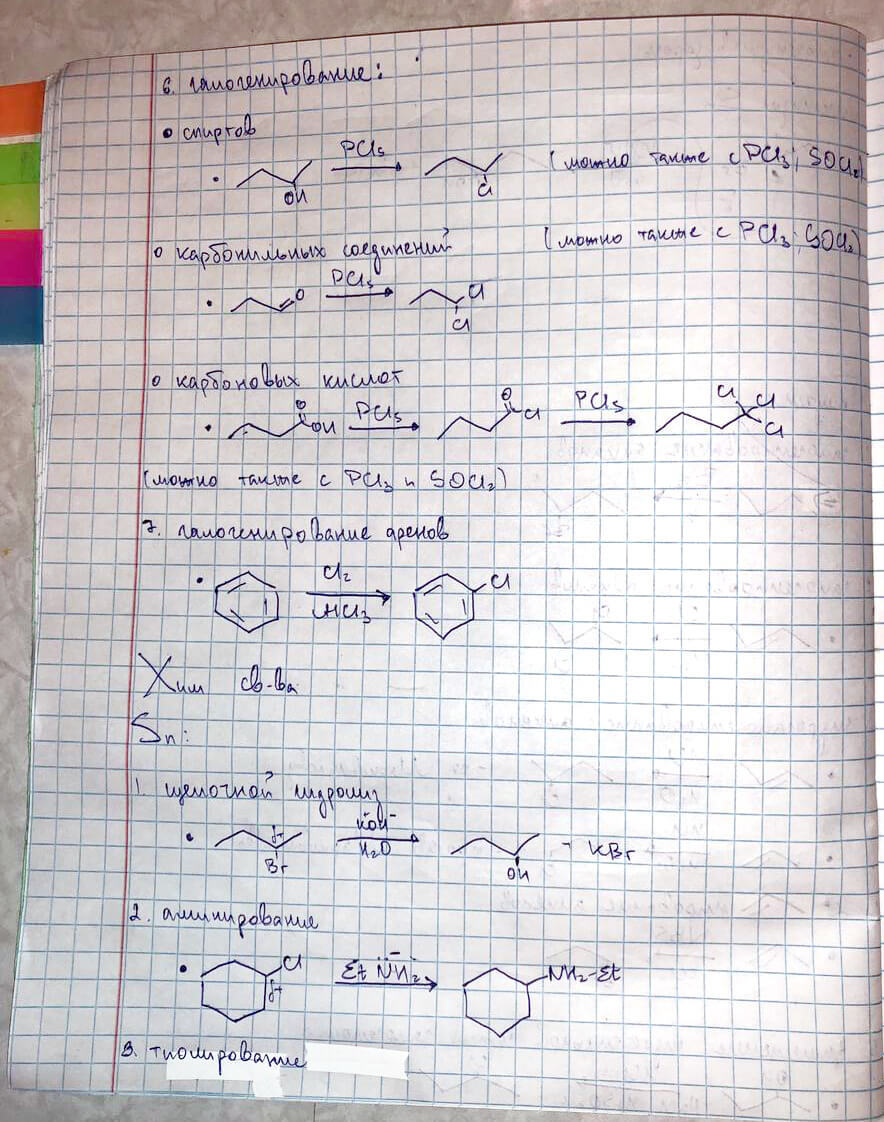 6. галогенирование:
• спиртов
PCl5
OH
Cl
(можно также с PCl3; SOCl2)
o карбонильных соединений
(можно также с PCl3; SOCl2)
O
PCl5
Cl
Cl
o карбоновых кислот
O
OH
PCl5
O
Cl
PCl5
Cl
Cl
Cl
(можно также с PCl3 и SOCl2)
7. галогенирование аренов
Cl2
AlCl3
Cl
Хим св-ва
Sn:
1. щелочной гидролиз
δ+
Br
KOH
H2O
OH
- KBr
2. аминирование
Cl
δ+
Et NH2
NH2-Et
3. тиолирование